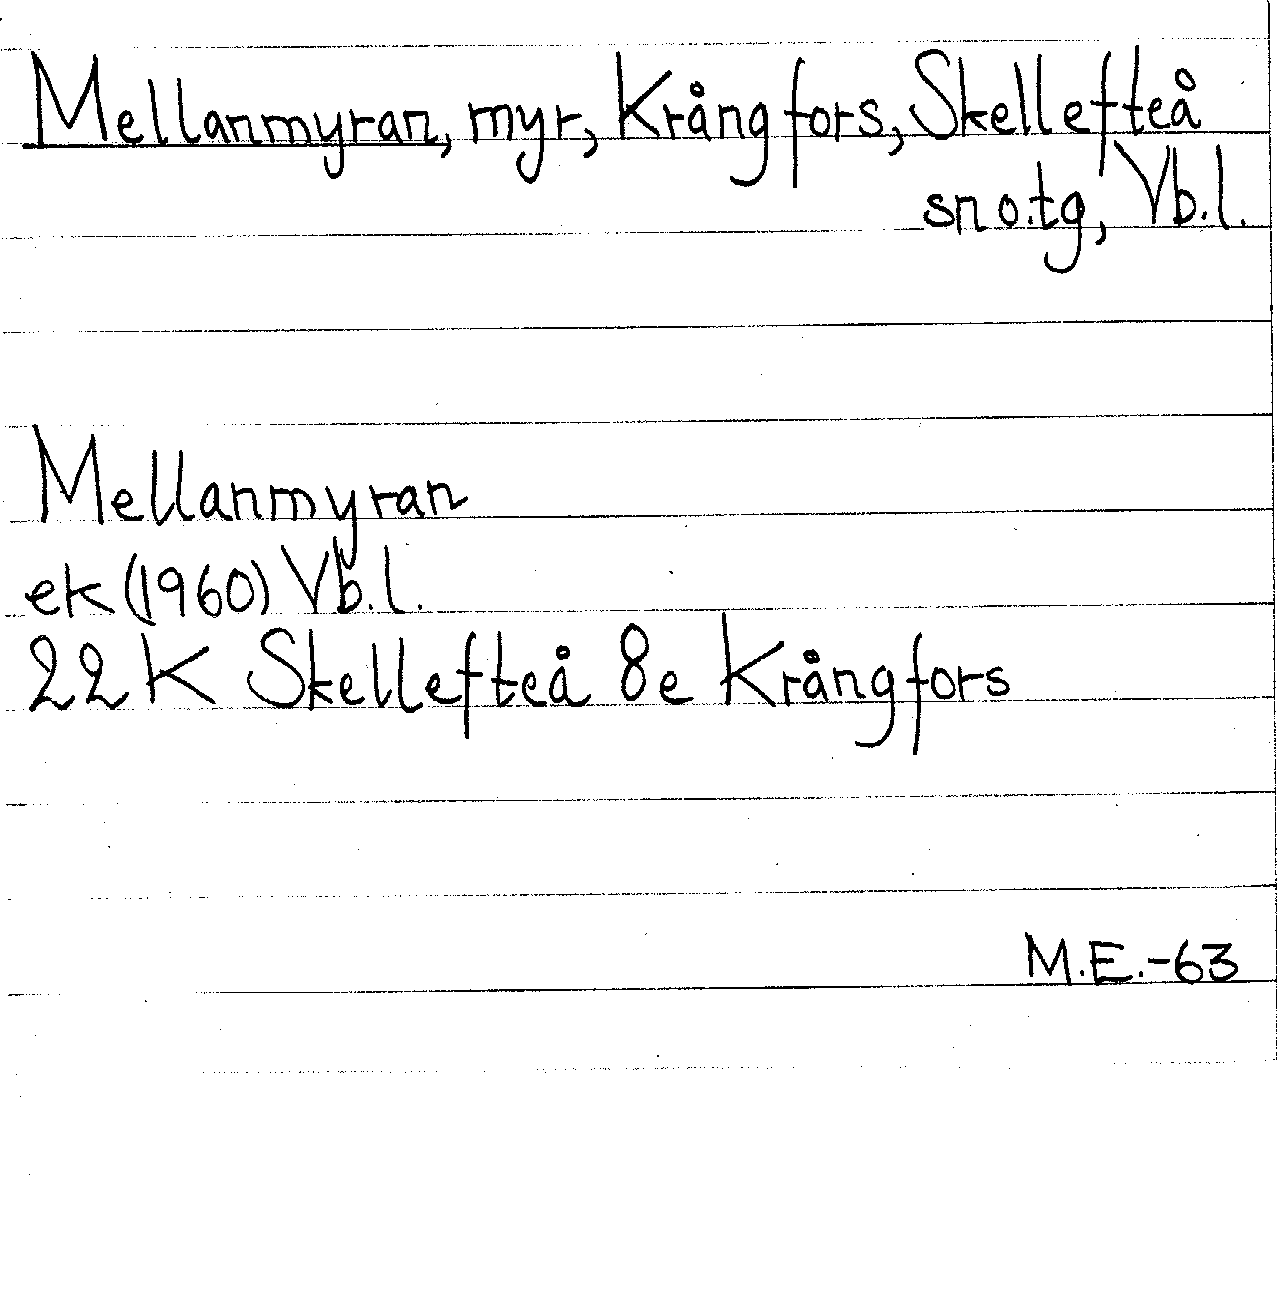 Mellanmyran, myr, Krångfors, Skellefteå
sn o. tg, Vb. l.
Mellanmyran
ek (1960) Vb. l.
22 K Skellefteå 8e Krångfors
M.E.-63